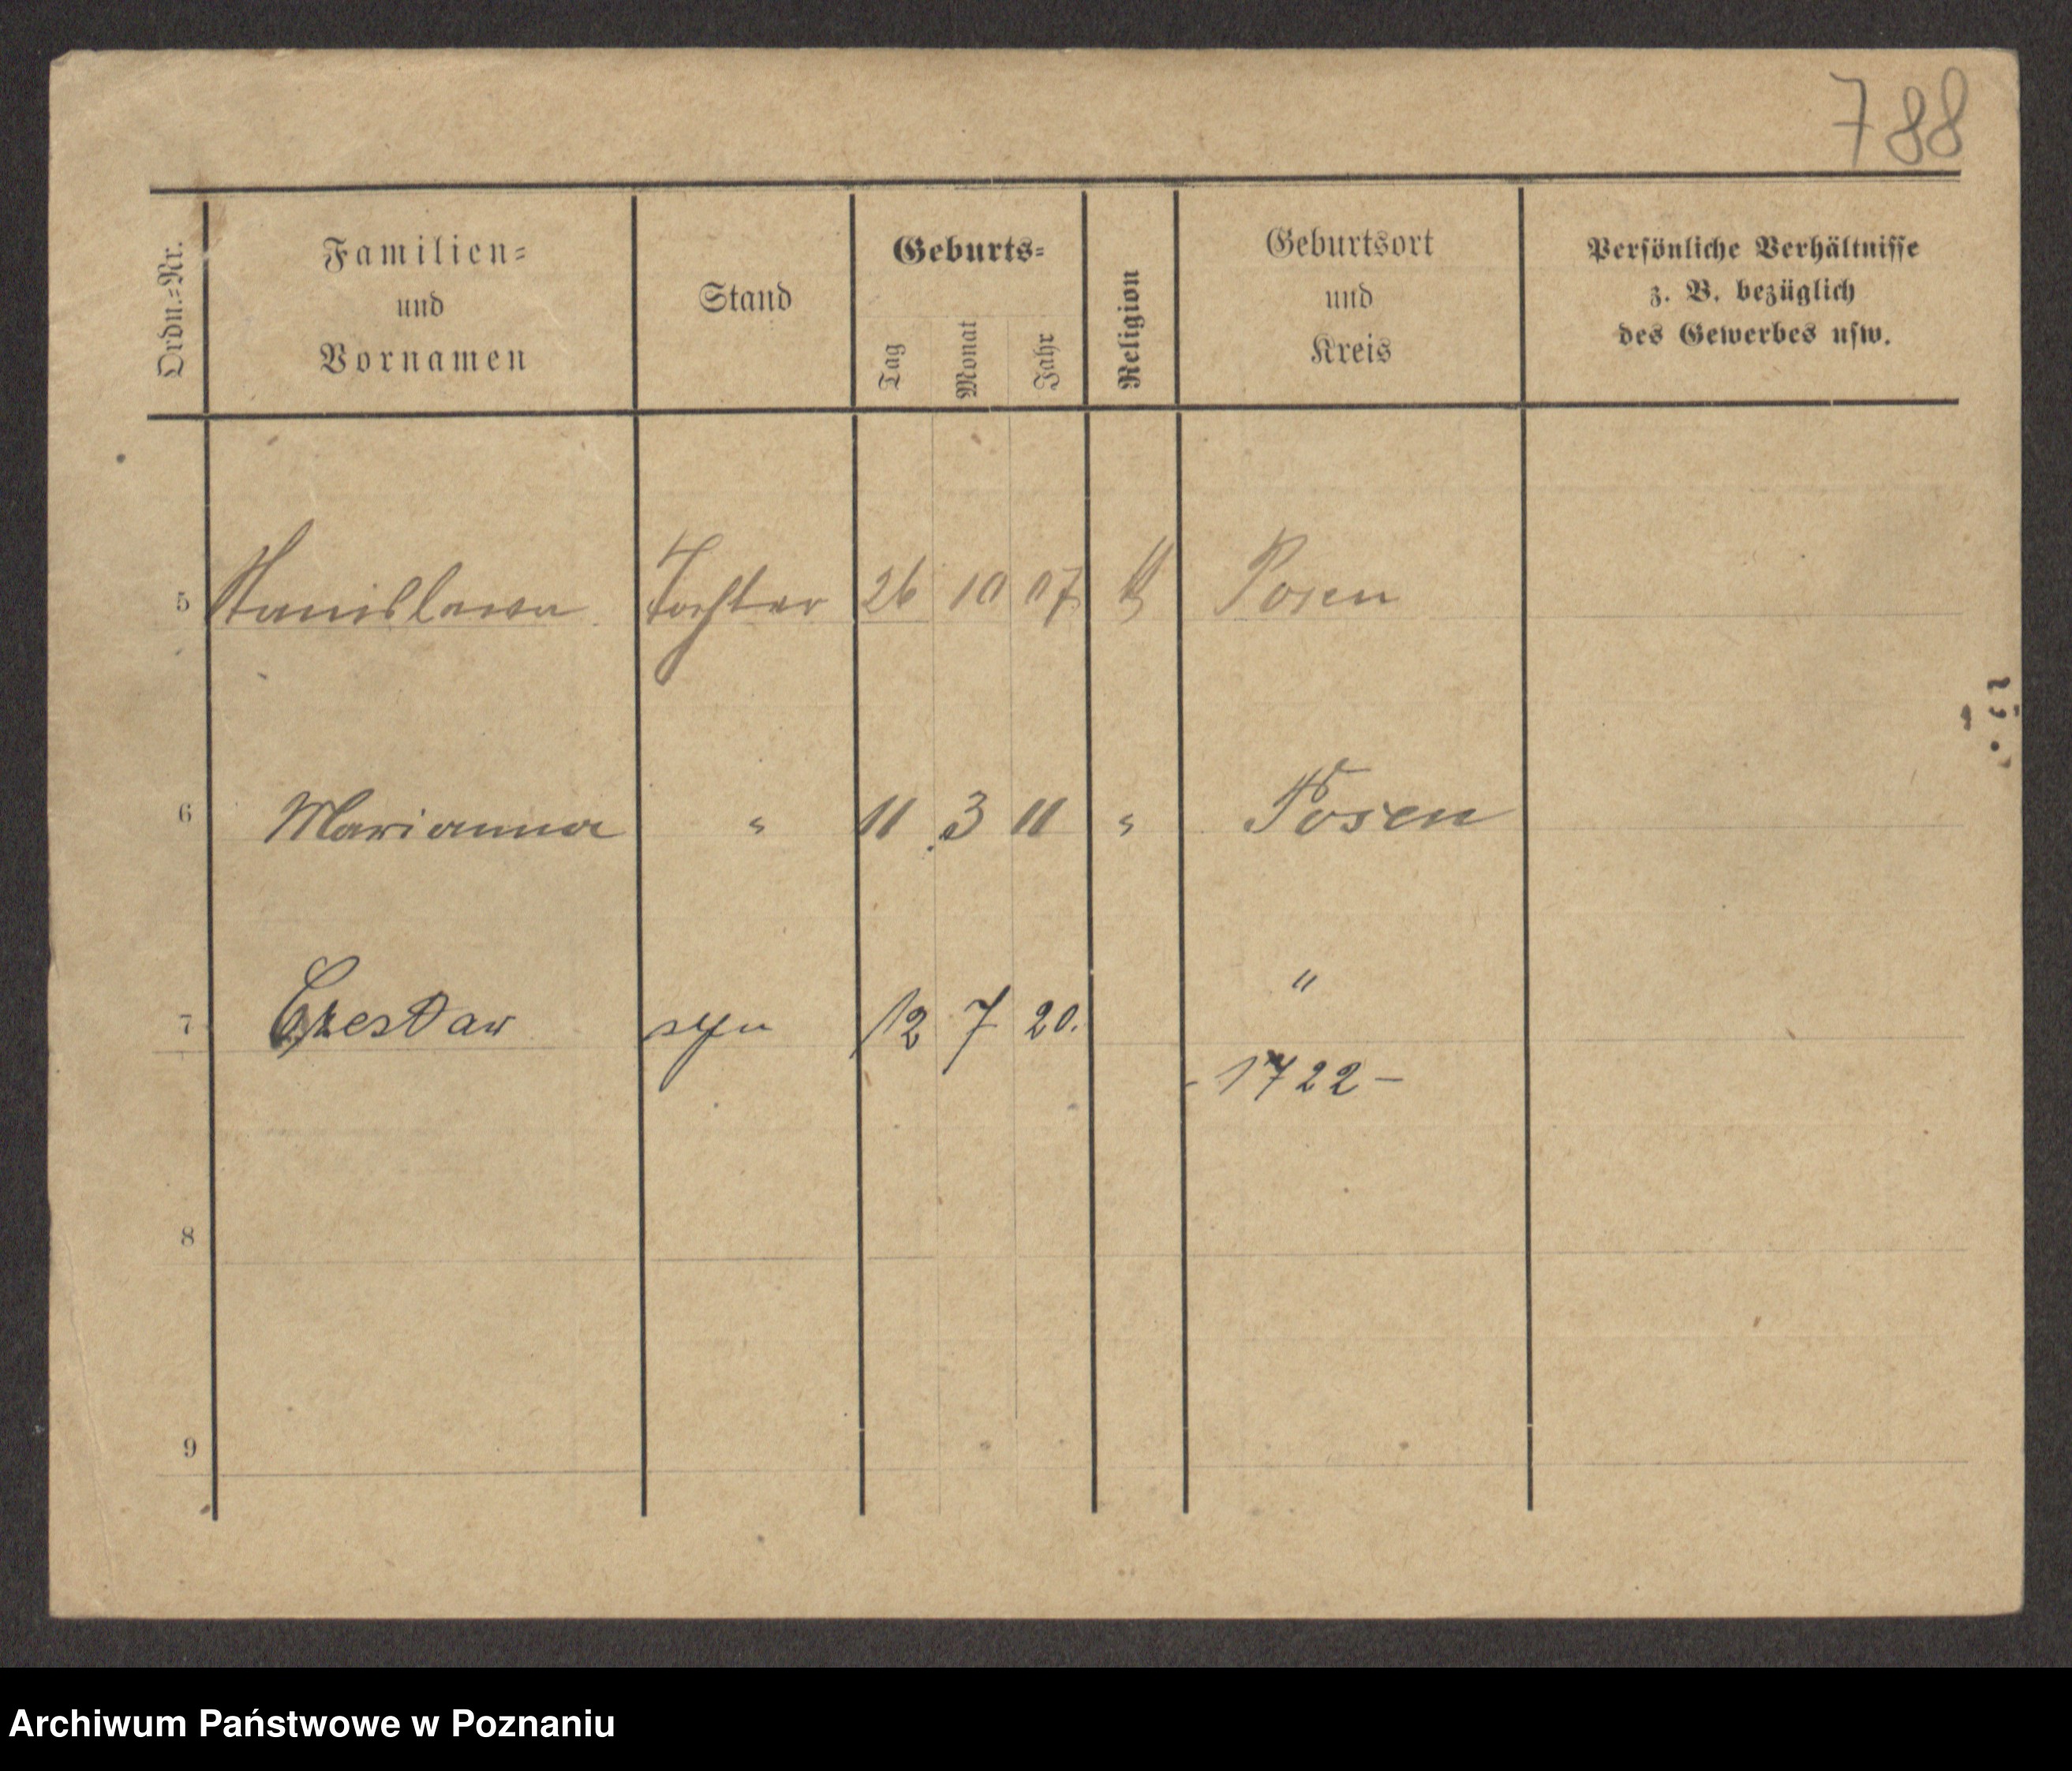 788
Ordn.=Nr.
Familien=
und
Vornamen
Stand
Geburts=
Tag
Monat
Jahr
Religion
Geburtsort
und
Kreis
Persönliche Verhältnisse
z. B. bezüglich
des Gewerbes usw.
5 Stanislawa Tochter 26 10 07 Posen
6 Marianna " 11 3 11 " Posen
7 Czesław syn 12 7 20. "
- 1722 -
8
9
Archiwum Państwowe w Poznaniu